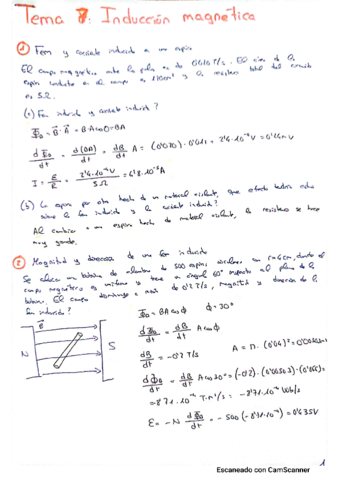 Tema 8: Inducción magnética
① Fem y corriente inducida a una espira
El campo magnético entre los polos es de 0'020 T/s. El área de la
espira conductora en el campo es 120cm² y la resistencia total del circuito
es 5Ω.
(a) Fem inducida y corriente inducida?
Φ_B = B · A = B·A cos0 = BA
dΦ_B/dt = d(BA)/dt = dB/dt A = (0'020) · 0'012 = 2'4·10⁻⁴V = 0'24mV
I = ε/R = 2'4·10⁻⁴V / 5Ω = 4'8·10⁻⁵A
(b) La espira por otra hecha de un material aislante, que efecto tendría esto
sobre la fem inducida y la corriente inducida?
Al cambiar a una espira hecha de material aislante, la resistencia se hace
muy grande.
② Magnitud y dirección de una fem inducida
Se coloca una bobina de alambre de 500 espiras circulares con r=4cm, donde el
campo magnético es uniforme y tiene un ángulo 60° respecto al plano de la
bobina. El campo disminuye a razón de 0'2 T/s, magnitud y dirección de la
fem inducida?
Φ_B = BA cosϕ ϕ = 30°
B
N
S
dΦ_B/dt = dB/dt A cosϕ
dB/dt = -0'2 T/s
A = π · (0'04)² = 0'00503m²
dΦ_B/dt = dB/dt A cos30° = (-0'2) · (0'00503) · (0'866) =
= -8'71·10⁻⁴ T·m²/s = -8'71·10⁻⁴ Wb/s
ε = -N dΦ_B/dt = -500 (-8'71·10⁻⁴) = 0'435V
1
Escaneado con CamScanner